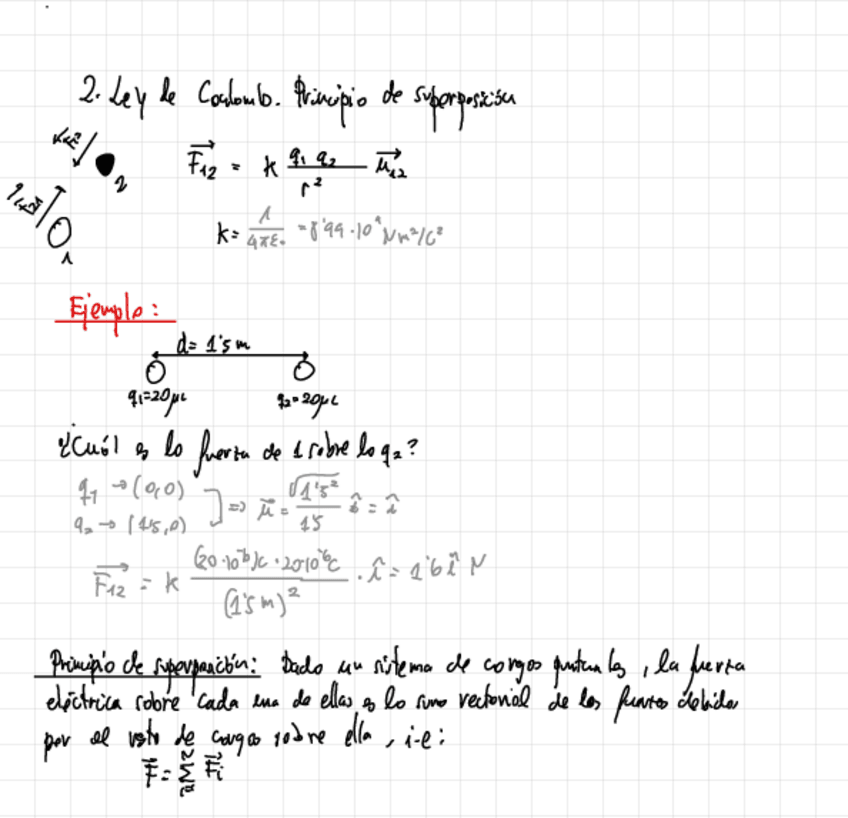 2. Ley de Coulomb. Principio de superposición
F₁₂ = k q₁ q₂ / r² μ₁₂
2
1
k = 1 / 4πε₀ = 8'99·10⁹ Nm²/C²
Ejemplo:
d = 1'5 m
q₁=20μC q₂=20μC
¿Cuál es la fuerza de 1 sobre la q₂?
q₁ → (0,0)
q₂ → (1'5,0) ] ⇒ μ = √1'5² / 15 î = î
F₁₂ = k (20·10⁻⁶)C · 20·10⁻⁶C / (1'5 m)² · î = 1'6 î N
Principio de superposición: Dado un sistema de cargas puntuales, la fuerza
eléctrica sobre cada una de ellas es la suma vectorial de las fuerzas debidas
por el resto de cargas sobre ella, i-e:
F = Σ Fᵢ